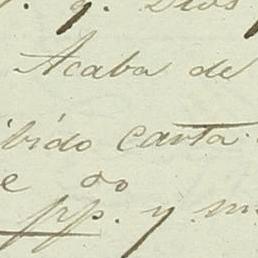 . q. Dios
Acaba de
ibido carta
e
pp.^{do} y m